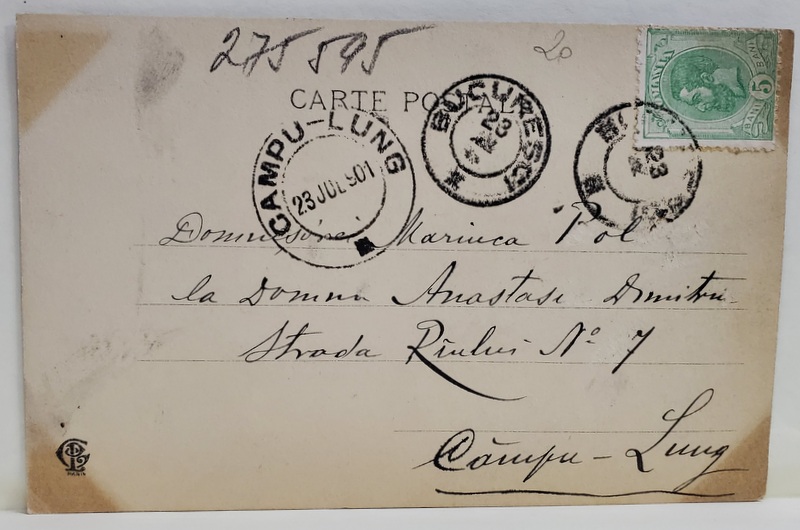 275 595
20
CARTE POSTALĂ
CAMPU-LUNG
23 JUL 901
BUCURESCI
23
23
5 BANI 5
Domnișórei Mariuca Pol
la Domnu Anastase Dimitriu
Strada Rîului Nº 7
Câmpu-Lung
PARIS